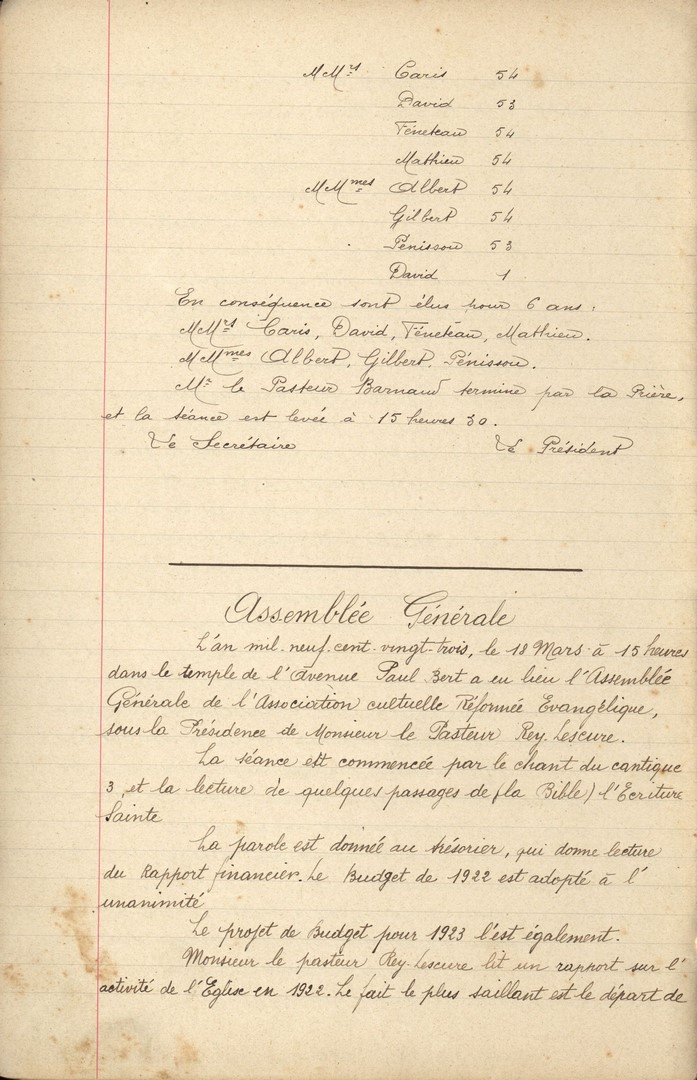 MMrs Caris 54
David 53
Féneteau 54
Mathieu 54
MMmes Albert 54
Gilbert 54
Pénisson 53
David 1
En conséquence sont élus pour 6 ans :
MMrs Caris, David, Féneteau, Mathieu.
MMmes Albert, Gilbert, Pénisson.
Mr le Pasteur Barnaud termine par la Prière,
et la séance est levée à 15 heures 30.
Le Secrétaire Le Président
Assemblée Générale
L'an mil-neuf-cent-vingt-trois, le 18 Mars à 15 heures
dans le temple de l'Avenue Paul Bert a eu lieu l'Assemblée
Générale de l'Association cultuelle Réformée Evangélique,
sous la Présidence de Monsieur le Pasteur Rey-Lescure.
La séance est commencée par le chant du cantique
3, et la lecture de quelques passages de (la Bible) l'Ecriture
Sainte
La parole est donnée au trésorier, qui donne lecture
du Rapport financier. Le Budget de 1922 est adopté à l'
unanimité
Le projet de Budget pour 1923 l'est également.
Monsieur le pasteur Rey-Lescure lit un rapport sur l'
activité de l'Eglise en 1922. Le fait le plus saillant est le départ de